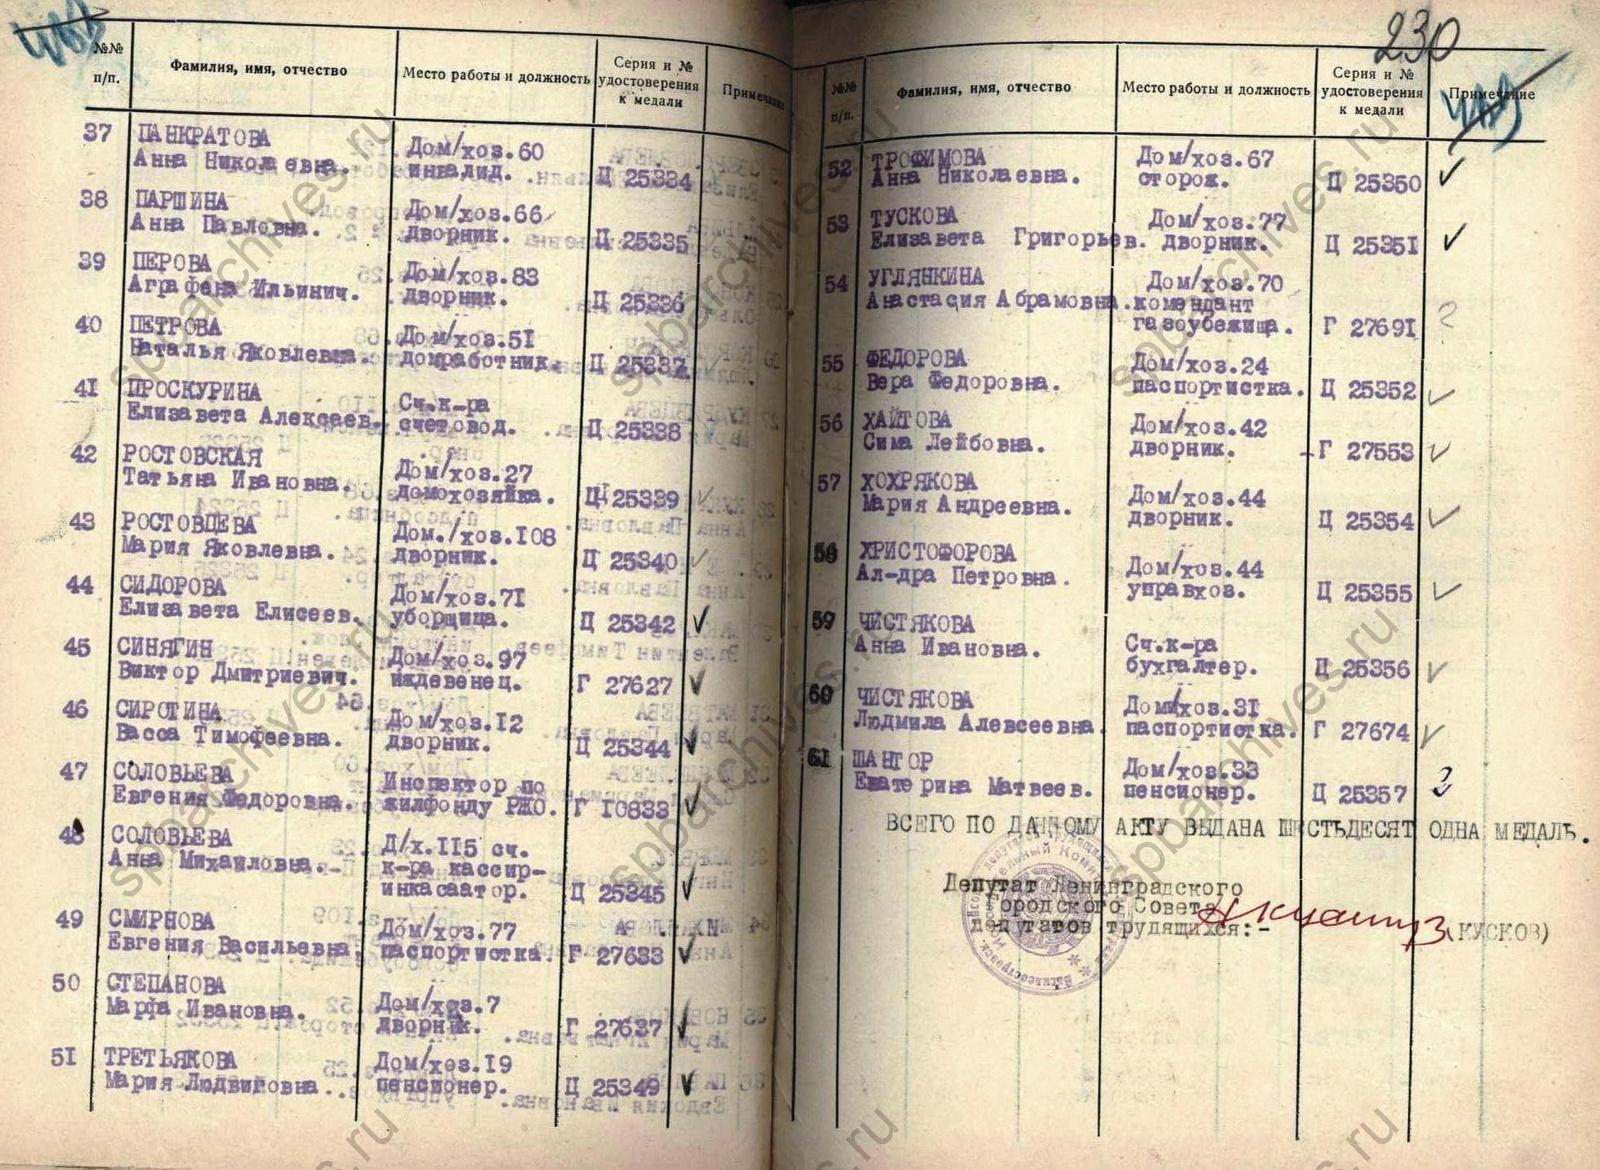 №№ п/п.
Фамилия, имя, отчество
Место работы и должность
Серия и № удостоверения к медали
Примечание
37 ПАНКРАТОВА Дом/хоз.60
Анна Николаевна. инвалид. Ц 25334
38 ПАРШИНА Дом/хоз.66
Анна Павловна. дворник. Ц 25335
39 ПЕРОВА Дом/хоз.83
Аграфена Ильинич. дворник. Ц 25336
40 ПЕТРОВА Дом/хоз.51
Наталья Яковлевна. домработник. Ц 25337
41 ПРОСКУРИНА Сч.к-ра
Елизавета Алексеев. счетовод. Ц 25338
42 РОСТОВСКАЯ Дом/хоз.27
Татьяна Ивановна. домохозяйка. Ц 25339
43 РОСТОВЦЕВА Дом./хоз.108
Мария Яковлевна. дворник. Ц 25340
44 СИДОРОВА Дом/хоз.71
Елизавета Елисеев. уборщица. Ц 25342
45 СИНЯГИН Дом/хоз.97
Виктор Дмитриевич. иждевенец. Г 27627
46 СИРОТИНА Дом/хоз.12
Васса Тимофеевна. дворник. Ц 25344
47 СОЛОВЬЕВА Инспектор по
Евгения Федоровна. жилфонду РЖО. Г 10833
48 СОЛОВЬЕВА Д/х.115 сч.
Анна Михайловна.- к-ра кассир-
инкасаатор. Ц 25345
49 СМИРНОВА Дом/хоз.77
Евгения Васильевна. паспортистка. Г 27633
50 СТЕПАНОВА Дом/хоз.7
Марфа Ивановна. дворник. Г 27637
51 ТРЕТЬЯКОВА Дом/хоз.19
Мария Людвиговна.. пенсионер. Ц 25349
230
№№ п/п.
Фамилия, имя, отчество
Место работы и должность
Серия и № удостоверения к медали
Примечание
52 ТРОФИМОВА Дом/хоз.67
Анна Николаевна. сторож. Ц 25350
53 ТУСКОВА Дом/хоз.77
Елизавета Григорьев. дворник. Ц 25351
54 УГЛЯНКИНА Дом/хоз.70
Анастасия Абрамовна. комендант
газоубежища. Г 27691 ?
55 ФЕДОРОВА Дом/хоз.24
Вера Федоровна. паспортистка. Ц 25352
56 ХАЙТОВА Дом/хоз.42
Сима Лейбовна. дворник. Г 27553
57 ХОХРЯКОВА Дом/хоз.44
Мария Андреевна. дворник. Ц 25354
58 ХРИСТОФОРОВА Дом/хоз.44
Ал-дра Петровна. управхоз. Ц 25355
59 ЧИСТЯКОВА Сч.к-ра
Анна Ивановна. бухгалтер. Ц 25356
60 ЧИСТЯКОВА Дом/хоз.31
Людмила Алексеевна. паспортистка. Г 27674
61 ШАНГОР Дом/хоз.33
Екатерина Матвеев. пенсионер. Ц 25357
ВСЕГО ПО ДАННОМУ АКТУ ВЫДАНА ШЕСТЬДЕСЯТ ОДНА МЕДАЛЬ.
Депутат Ленинградского
Городского Совета
депутатов трудящихся:- (КУСКОВ)
spbarchives.ru